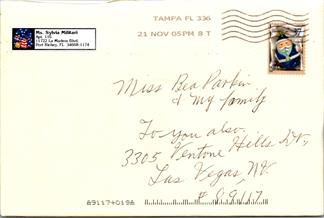 Ms. Sylvia Militari
Apt. 116
11722 La Madera Blvd
Port Richey, FL 34668-1174
TAMPA FL 336
21 NOV 05 PM 8 T
Miss Bea Parkin
& my family
To you also.
3305 Ventone Hills Dr,
Las Vegas NV.
# 89117
89117+0198